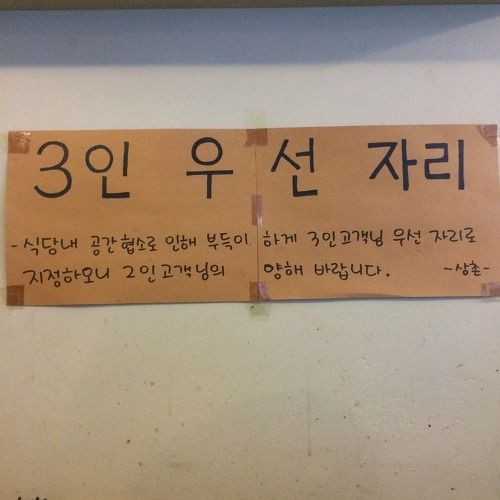 3인 우선 자리
- 식당내 공간협소로 인해 부득이하게 3인고객님 우선 자리로
지정하오니 2인고객님의 양해 바랍니다. -상촌-